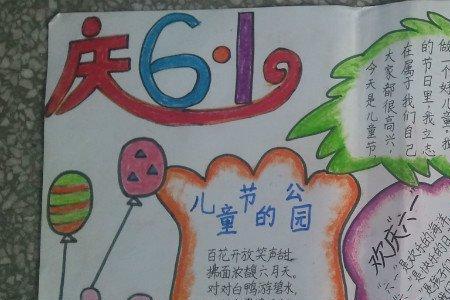 庆6·1
今天是儿童节,
大家都很高兴,
在属于我们自己
的节日里,我立志
做一个好儿童,我
儿童节的公园
百花开放笑声甜,
拂面浓馥六月天。
对对白鸭游碧水,
欢庆六一